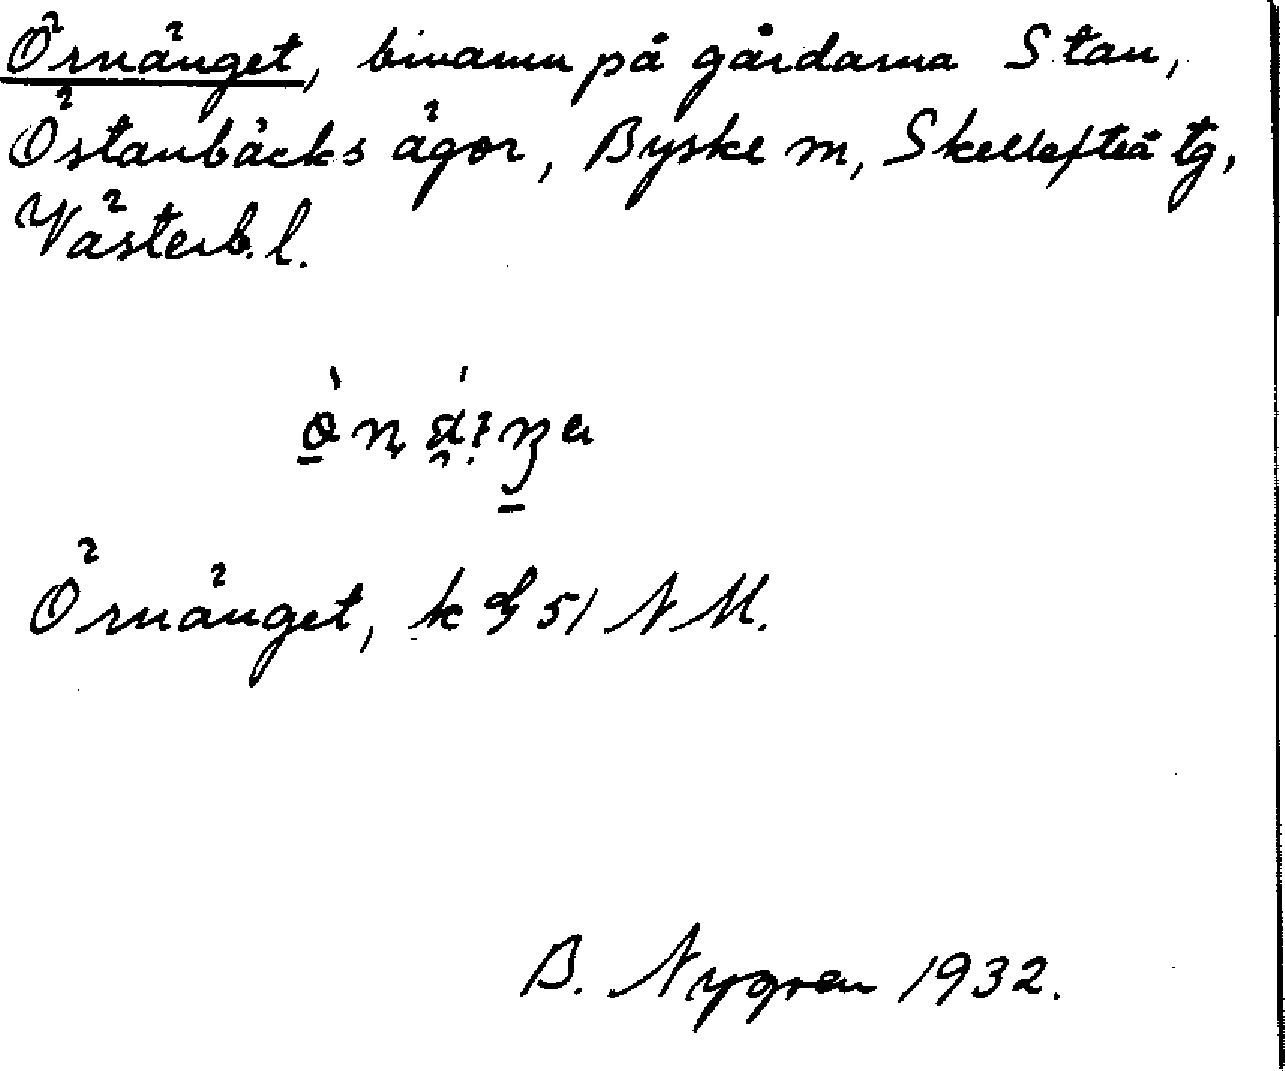 Örnänget, binamn på gårdarna Stan,
Östanbäcks ägor, Byske sn, Skellefteå tg,
Västerb. l.
Örnänget, k bl 51 N M.
B. Nygren 1932.